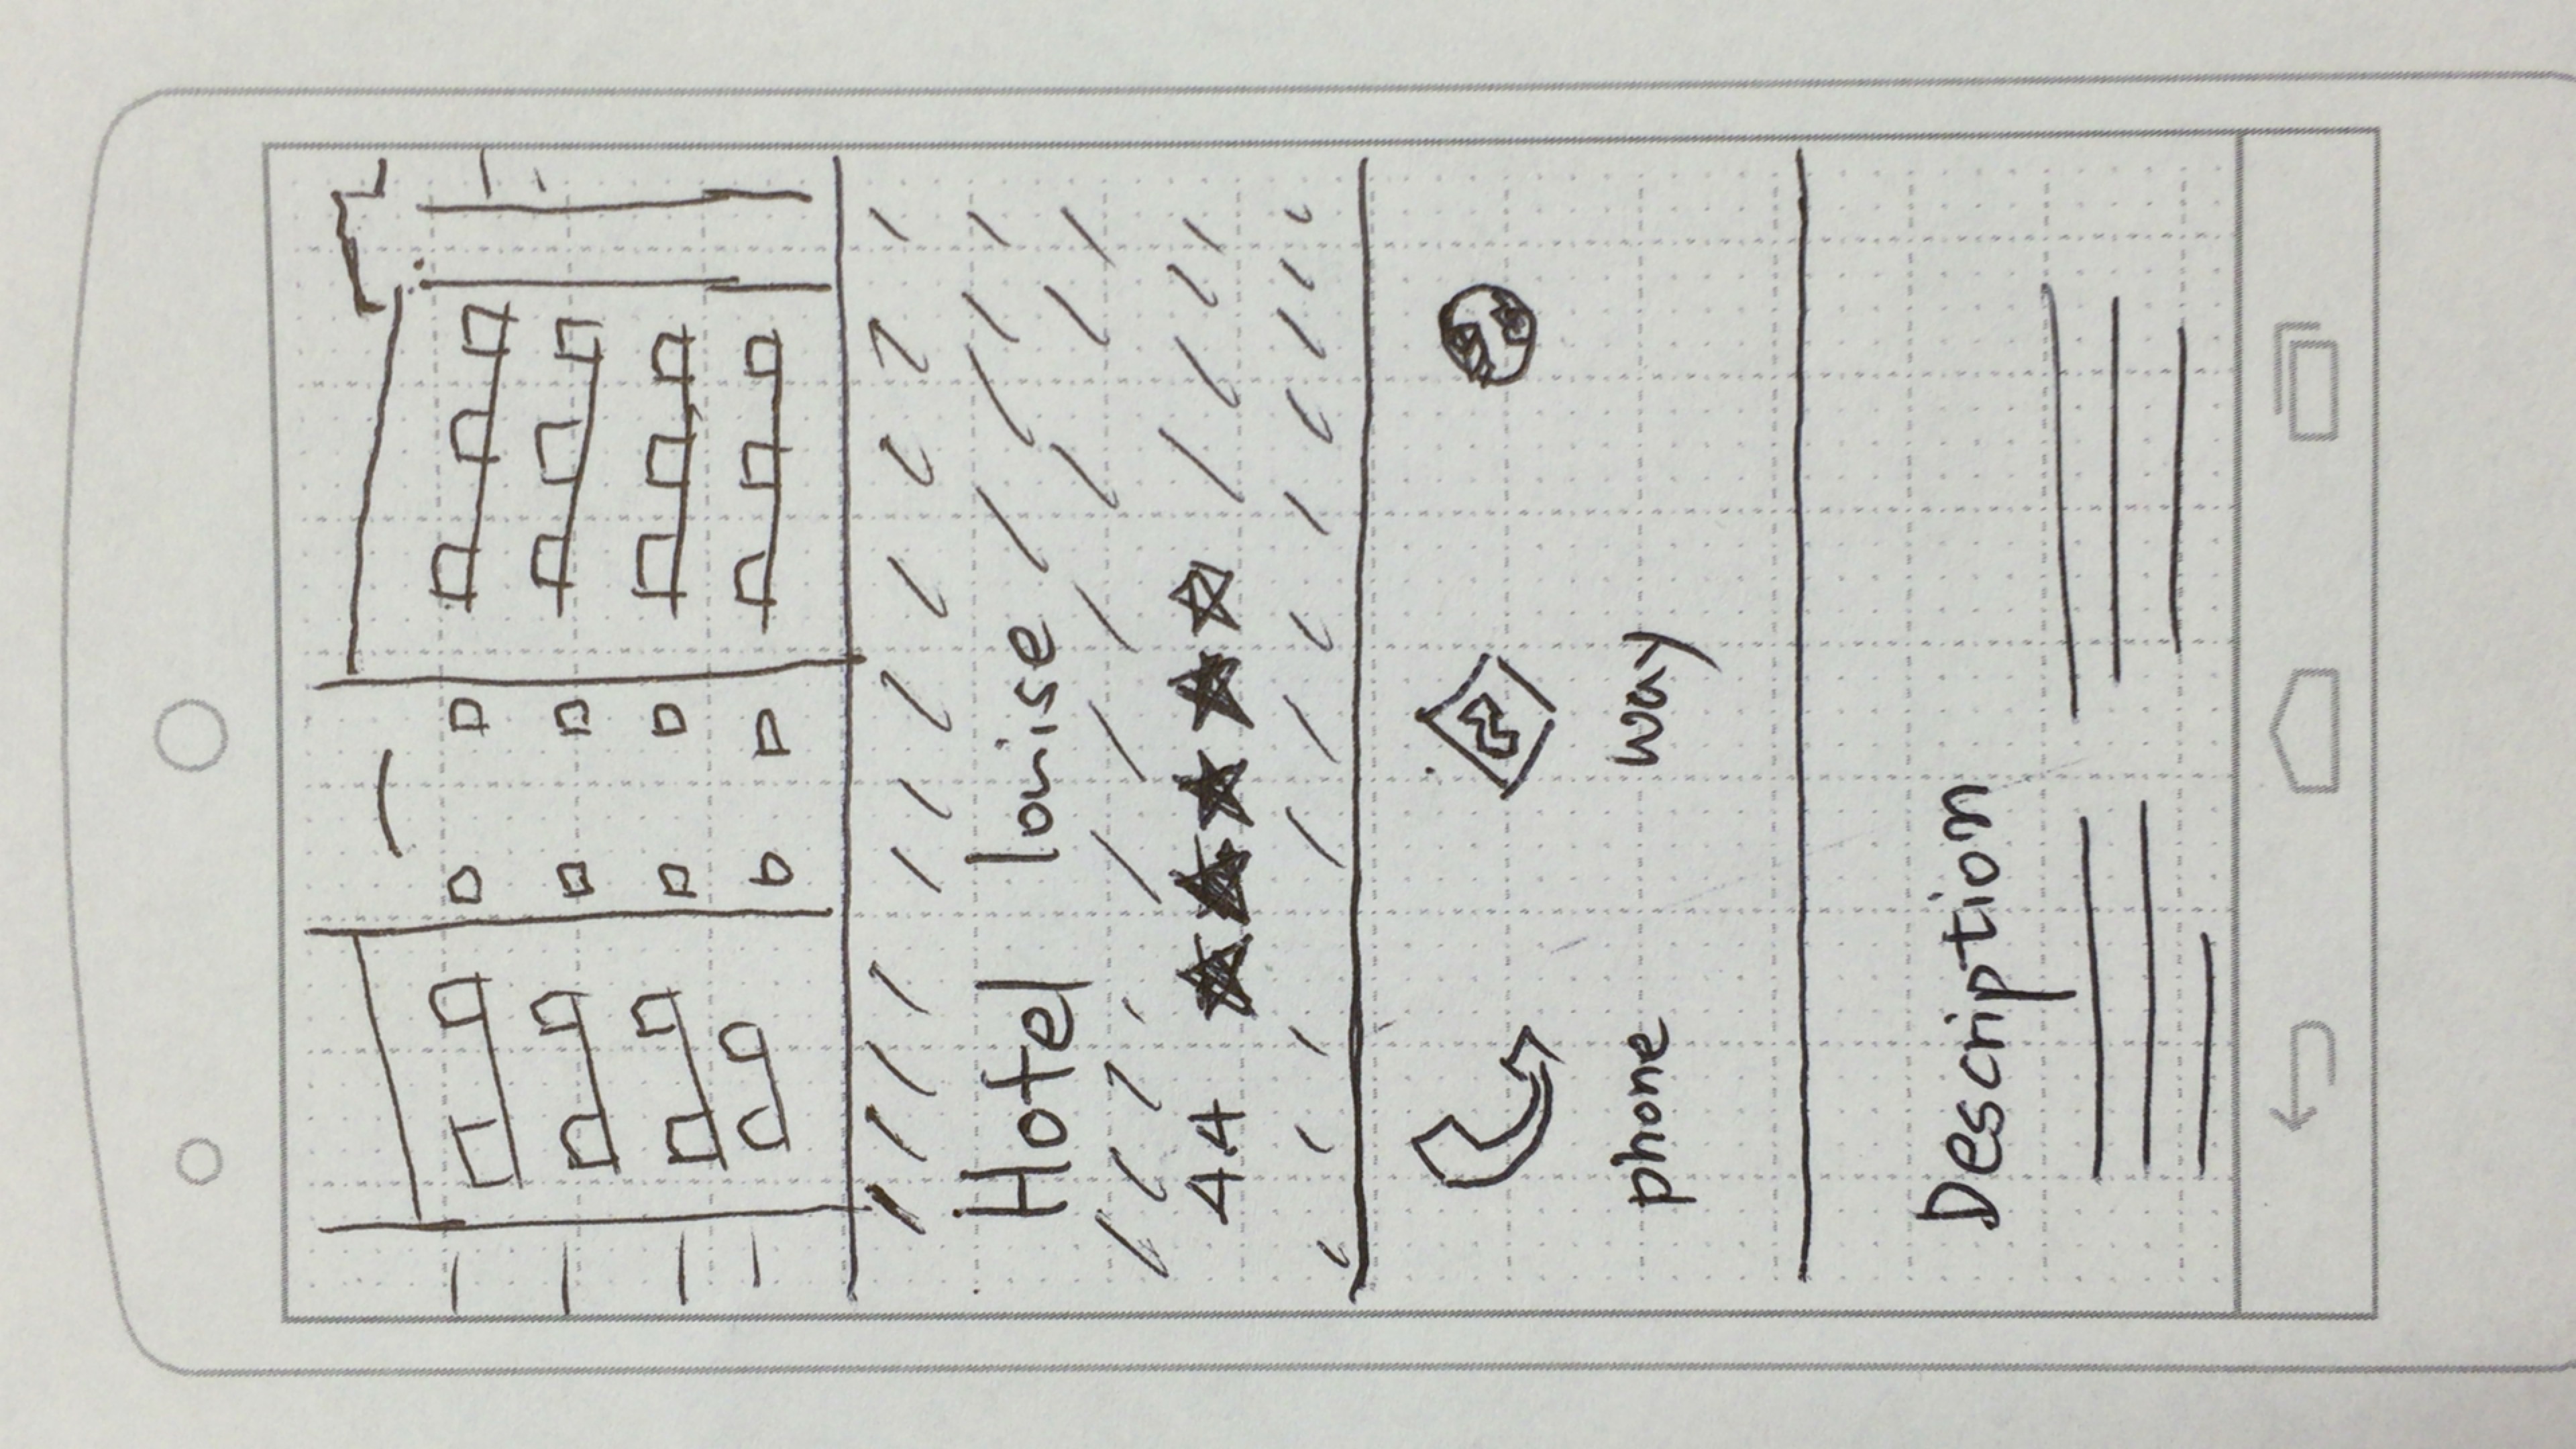 Hotel louise
4.4
phone way
Description